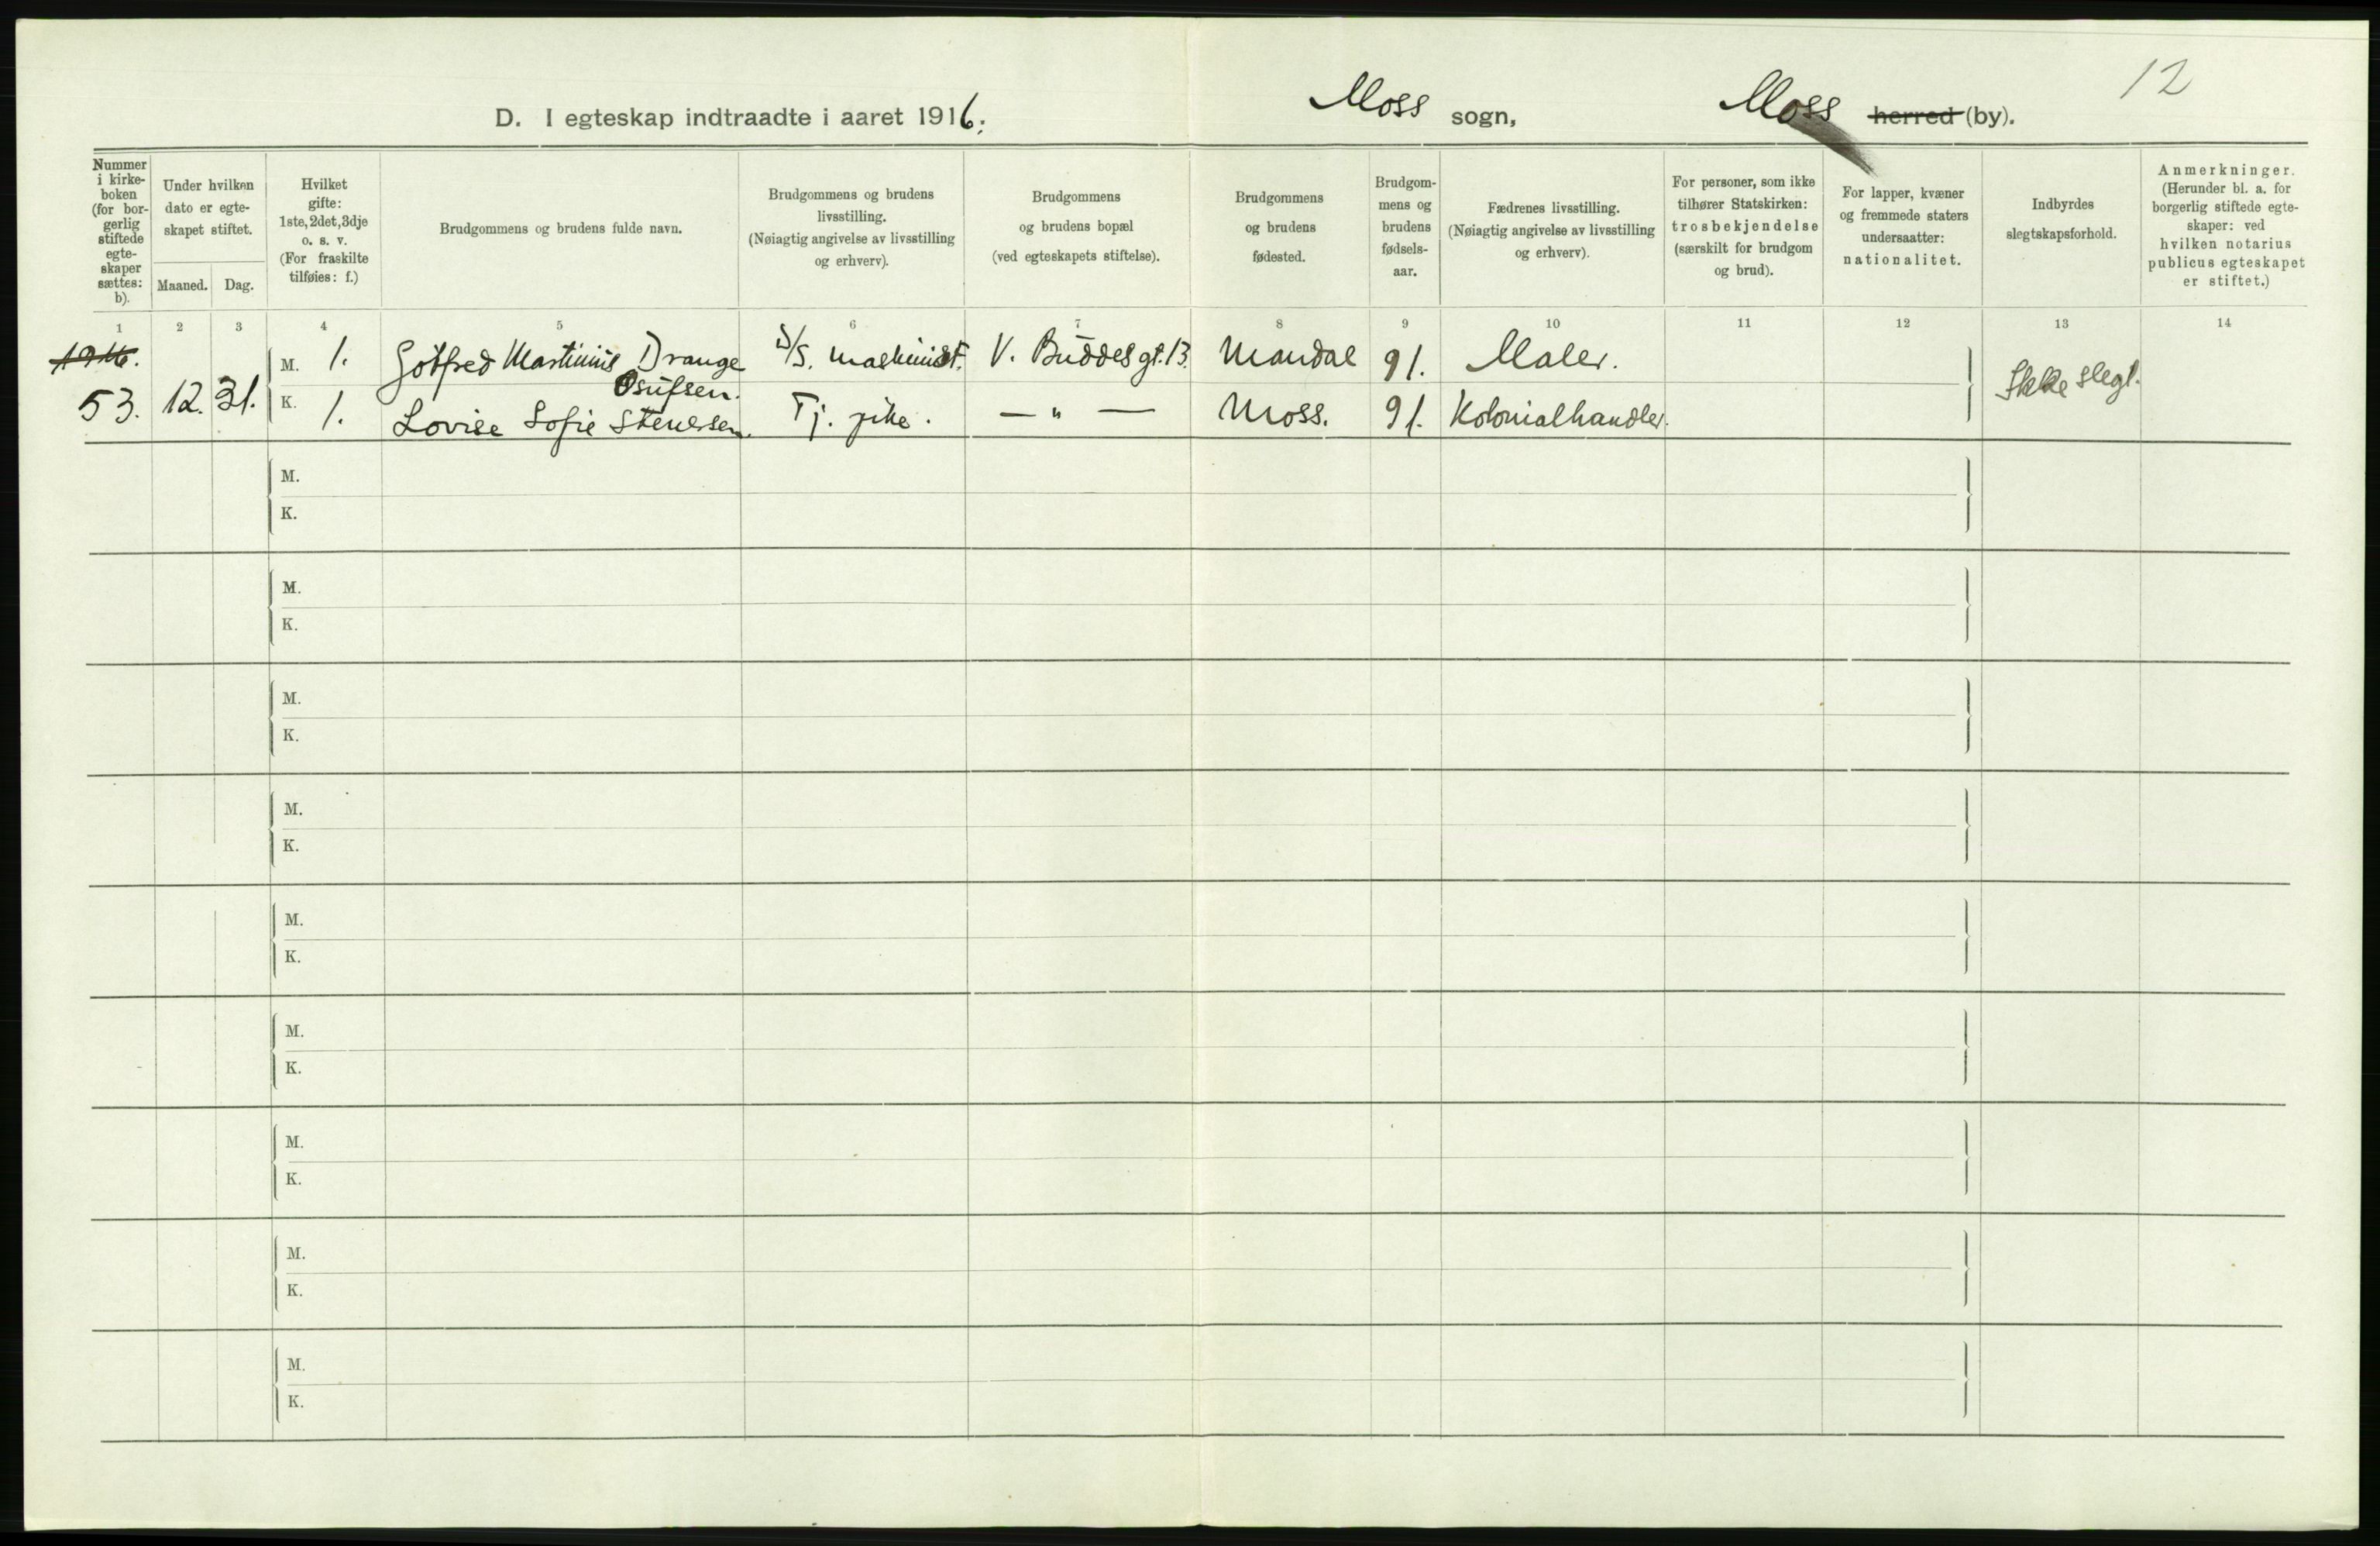 12
D. I egteskap indtraadte i aaret 1916. Moss sogn, Moss herred (by).
Nummer
i kirke-
boken
(for bor-
gerlig
stiftede
egte-
skaper
sættes:
b).
Under hvilken
dato er egte-
skapet stiftet.
Maaned. Dag.
Hvilket
gifte:
1ste, 2det, 3dje
o. s. v.
(For fraskilte
tilføies: f.)
Brudgommens og brudens fulde navn.
Brudgommens og brudens
livsstilling.
(Nøiagtig angivelse av livsstilling
og erhverv).
Brudgommens
og brudens bopæl
(ved egteskapets stiftelse).
Brudgommens
og brudens
fødested.
Brudgom-
mens og
brudens
fødsels-
aar.
Fædrenes livsstilling.
(Nøiagtig angivelse av livsstilling
og erhverv).
For personer, som ikke
tilhører Statskirken:
trosbekjendelse
(særskilt for brudgom
og brud).
For lapper, kvæner
og fremmede staters
undersaatter:
nationalitet.
Indbyrdes
slegtskapsforhold.
Anmerkninger.
(Herunder bl. a. for
borgerlig stiftede egte-
skaper: ved
hvilken notarius
publicus egteskapet
er stiftet.)
1 2 3 4 5 6 7 8 9 10 11 12 13 14
1916.
M. 1. Gotfred Martinius Drange D/S. maskinist. V. Buddes gt. 13. Mandal 91. Maler.
Osufsen.
53. 12. 31. Ikke slegt.
K. 1. Lovise Sofie Stenersen. Tj. pike. — " — Moss. 91. Kolonialhandler.
M.
K.
M.
K.
M.
K.
M.
K.
M.
K.
M.
K.
M.
K.
M.
K.
M.
K.